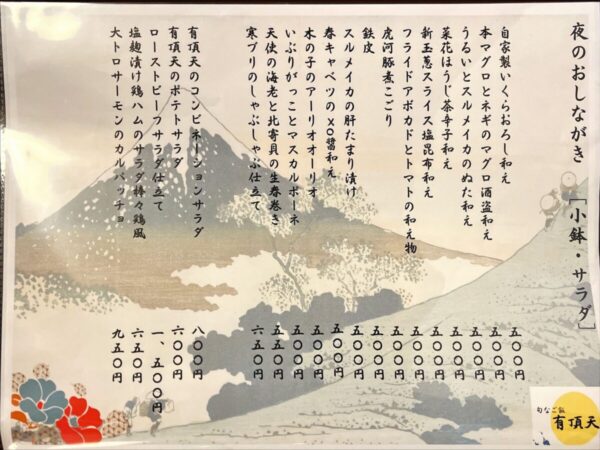 夜のおしながき [小鉢・サラダ]
自家製いくらおろし和え 五〇〇円
本マグロとネギのマグロ酒盗和え 五〇〇円
うるいとスルメイカのぬた和え 五〇〇円
菜花ほうじ茶辛子和え 五〇〇円
新玉葱スライス塩昆布和え 五〇〇円
フライドアボカドとトマトの和え物 五〇〇円
虎河豚煮こごり 五〇〇円
鉄皮 五〇〇円
スルメイカの肝たまり漬け 五〇〇円
春キャベツのXO醤和え 五〇〇円
木の子のアーリオオーリオ 五〇〇円
いぶりがっことマスカルポーネ 五〇〇円
天使の海老と北寄貝の生春巻き 五五〇円
寒ブリのしゃぶしゃぶ仕立て 六五〇円
有頂天のコンビネーションサラダ 八〇〇円
有頂天のポテトサラダ 六〇〇円
ローストビーフサラダ仕立て 一、五〇〇円
塩麹漬け鶏ハムのサラダ棒々鶏風 六五〇円
大トロサーモンのカルパッチョ 九五〇円
旬なご飯
有頂天